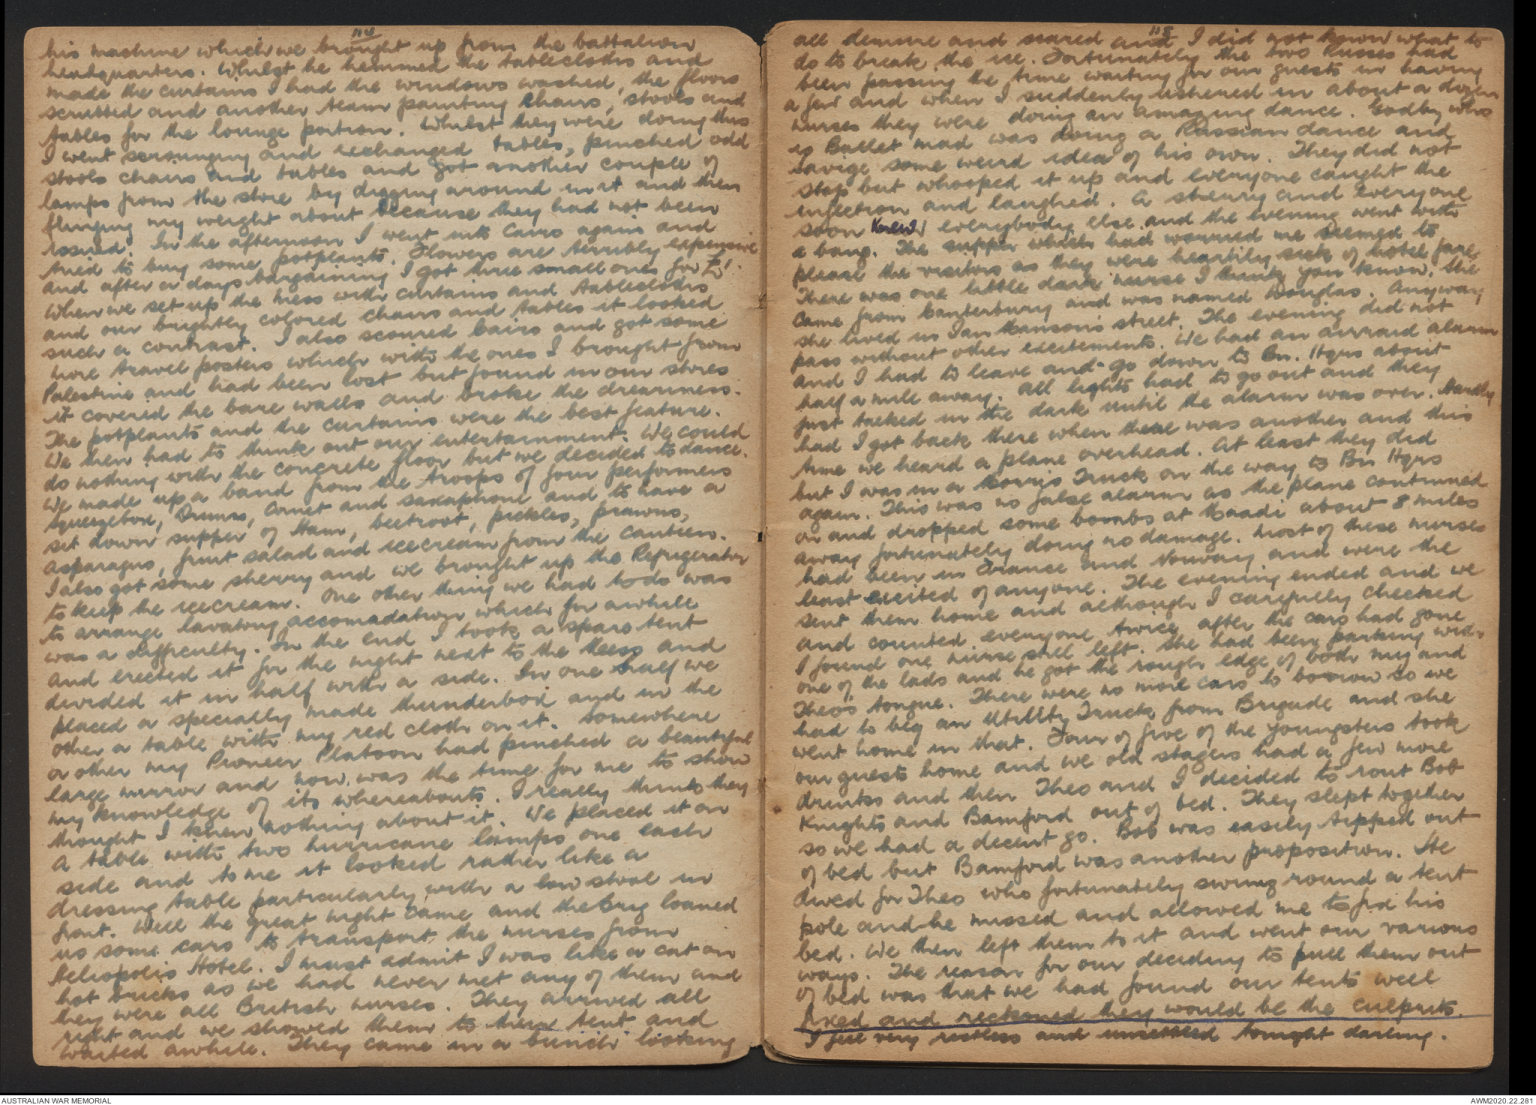 114
his machine which we brought up from the battalion
headquarters. Whilst he hemmed the tablecloths and
made the curtains I had the windows washed, the floors
scrubbed and another team painting chairs, stools and
tables for the lounge portion. Whilst they were doing this
I went scrounging and exchanged tables, pinched odd
stools chairs and tables and got another couple of
lamps from the store by digging around in it and then
flinging my weight about because they had not been
issued. In the afternoon I went into Cairo again and
tried to buy some potplants. Flowers are terribly expensive
and after a days bargaining I got three small ones for £1.
When we set up the mess with curtains and tablecloths
and our brightly colored chairs and tables it looked
such a contrast. I also scoured Cairo and got some
more travel posters which with the ones I brought from
Palestine and had been lost but found in our stores
it covered the bare walls and broke the dreariness.
The potplants and the curtains were the best feature.
We then had to think out our entertainment. We could
do nothing with the concrete floor but we decided to dance.
We made up a band from the troops of four performers
Squeezebox, Drums, Cornet and saxaphone and to have a
sit down supper of Ham, beetroot, pickles, prawns,
asparagus, fruit salad and icecream from the canteen.
I also got some sherry and we brought up the Refrigerator
to keep the icecream. One other thing we had to do was
to arrange lavatory accomodation which for awhile
was a difficulty. In the end I took a spare tent
and erected it for the night next to the Mess and
divided it in half with a side. In one half we
placed a specially made thunderbox and in the
other a table with my red cloth on it. Somewhere
or other my Pioneer Platoon had pinched a beautiful
large mirror and now was the time for me to show
my knowledge of its whereabouts. I really think they
thought I knew nothing about it. We placed it on
a table with two hurricane lamps one each
side and to me it looked rather like a
dressing table particularly with a low stool in
front. Well the great night came and the Brig loaned
us some cars to transport the nurses from
Heliopolis Hotel. I must admit I was like a cat on
hot bricks as we had never met any of them and
they were all British nurses. They arrived all
right and we showed them to their tent and
waited awhile. They came in a bunch looking
115
all demure and scared and I did not know what to
do to break the ice. Fortunately the two Russes had
been passing the time waiting for our guests in having
a few and when I suddenly ushered in about a dozen
nurses they were doing an amazing dance. Godby who
is Ballet mad was doing a Russian dance and
Savige some weird idea of his own. They did not
stop but whooped it up and everyone caught the
infection and laughed. A sherry and everyone
soon knew everybody else and the evening went with
a bang. The supper which had worried me seemed to
please the visitors as they were heartily sick of hotel fare.
There was one little dark nurse I think you know. She
came from Canterbury and was named Douglas. Anyway
she lived in Ian Ransom's street. The evening did not
pass without other excitements. We had an airraid alarm
and I had to leave and go down to Bn. Hqrs about
half a mile away. All lights had to go out and they
just talked in the dark until the alarm was over. Hardly
had I got back there when there was another and this
time we heard a plane overhead. At least they did
but I was in a truck on the way to Bn Hqrs
again. This was no false alarm as the plane continued
on and dropped some bombs at Maadi about 8 miles
away fortunately doing no damage. Most of these nurses
had been in France and Norway and were the
least excited of anyone. The evening ended and we
sent them home and although I carefully checked
and counted everyone twice after the cars had gone
I found one nurse still left. She had been parking with
one of the lads and he got the rough edge of both my and
Theo's tongue. There were no more cars to borrow so we
had to beg an Utility Truck from Brigade and she
went home in that. Four of five of the youngsters took
our guests home and we old stagers had a few more
drinks and then Theo and I decided to rout Bob
Knights and Bamford out of bed. They slept together
so we had a decent go. Bob was easily tipped out
of bed but Bamford was another proposition. He
dived for Theo who fortunately swung round a tent
pole and he missed and allowed me to fix his
bed. We then left them to it and went our various
ways. The reason for our deciding to pull them out
of bed was that we had found our tents well
fixed and reckoned they would be the culprits.
I feel very restless and unsettled tonight darling.
AUSTRALIAN WAR MEMORIAL
AWM2020.22.281